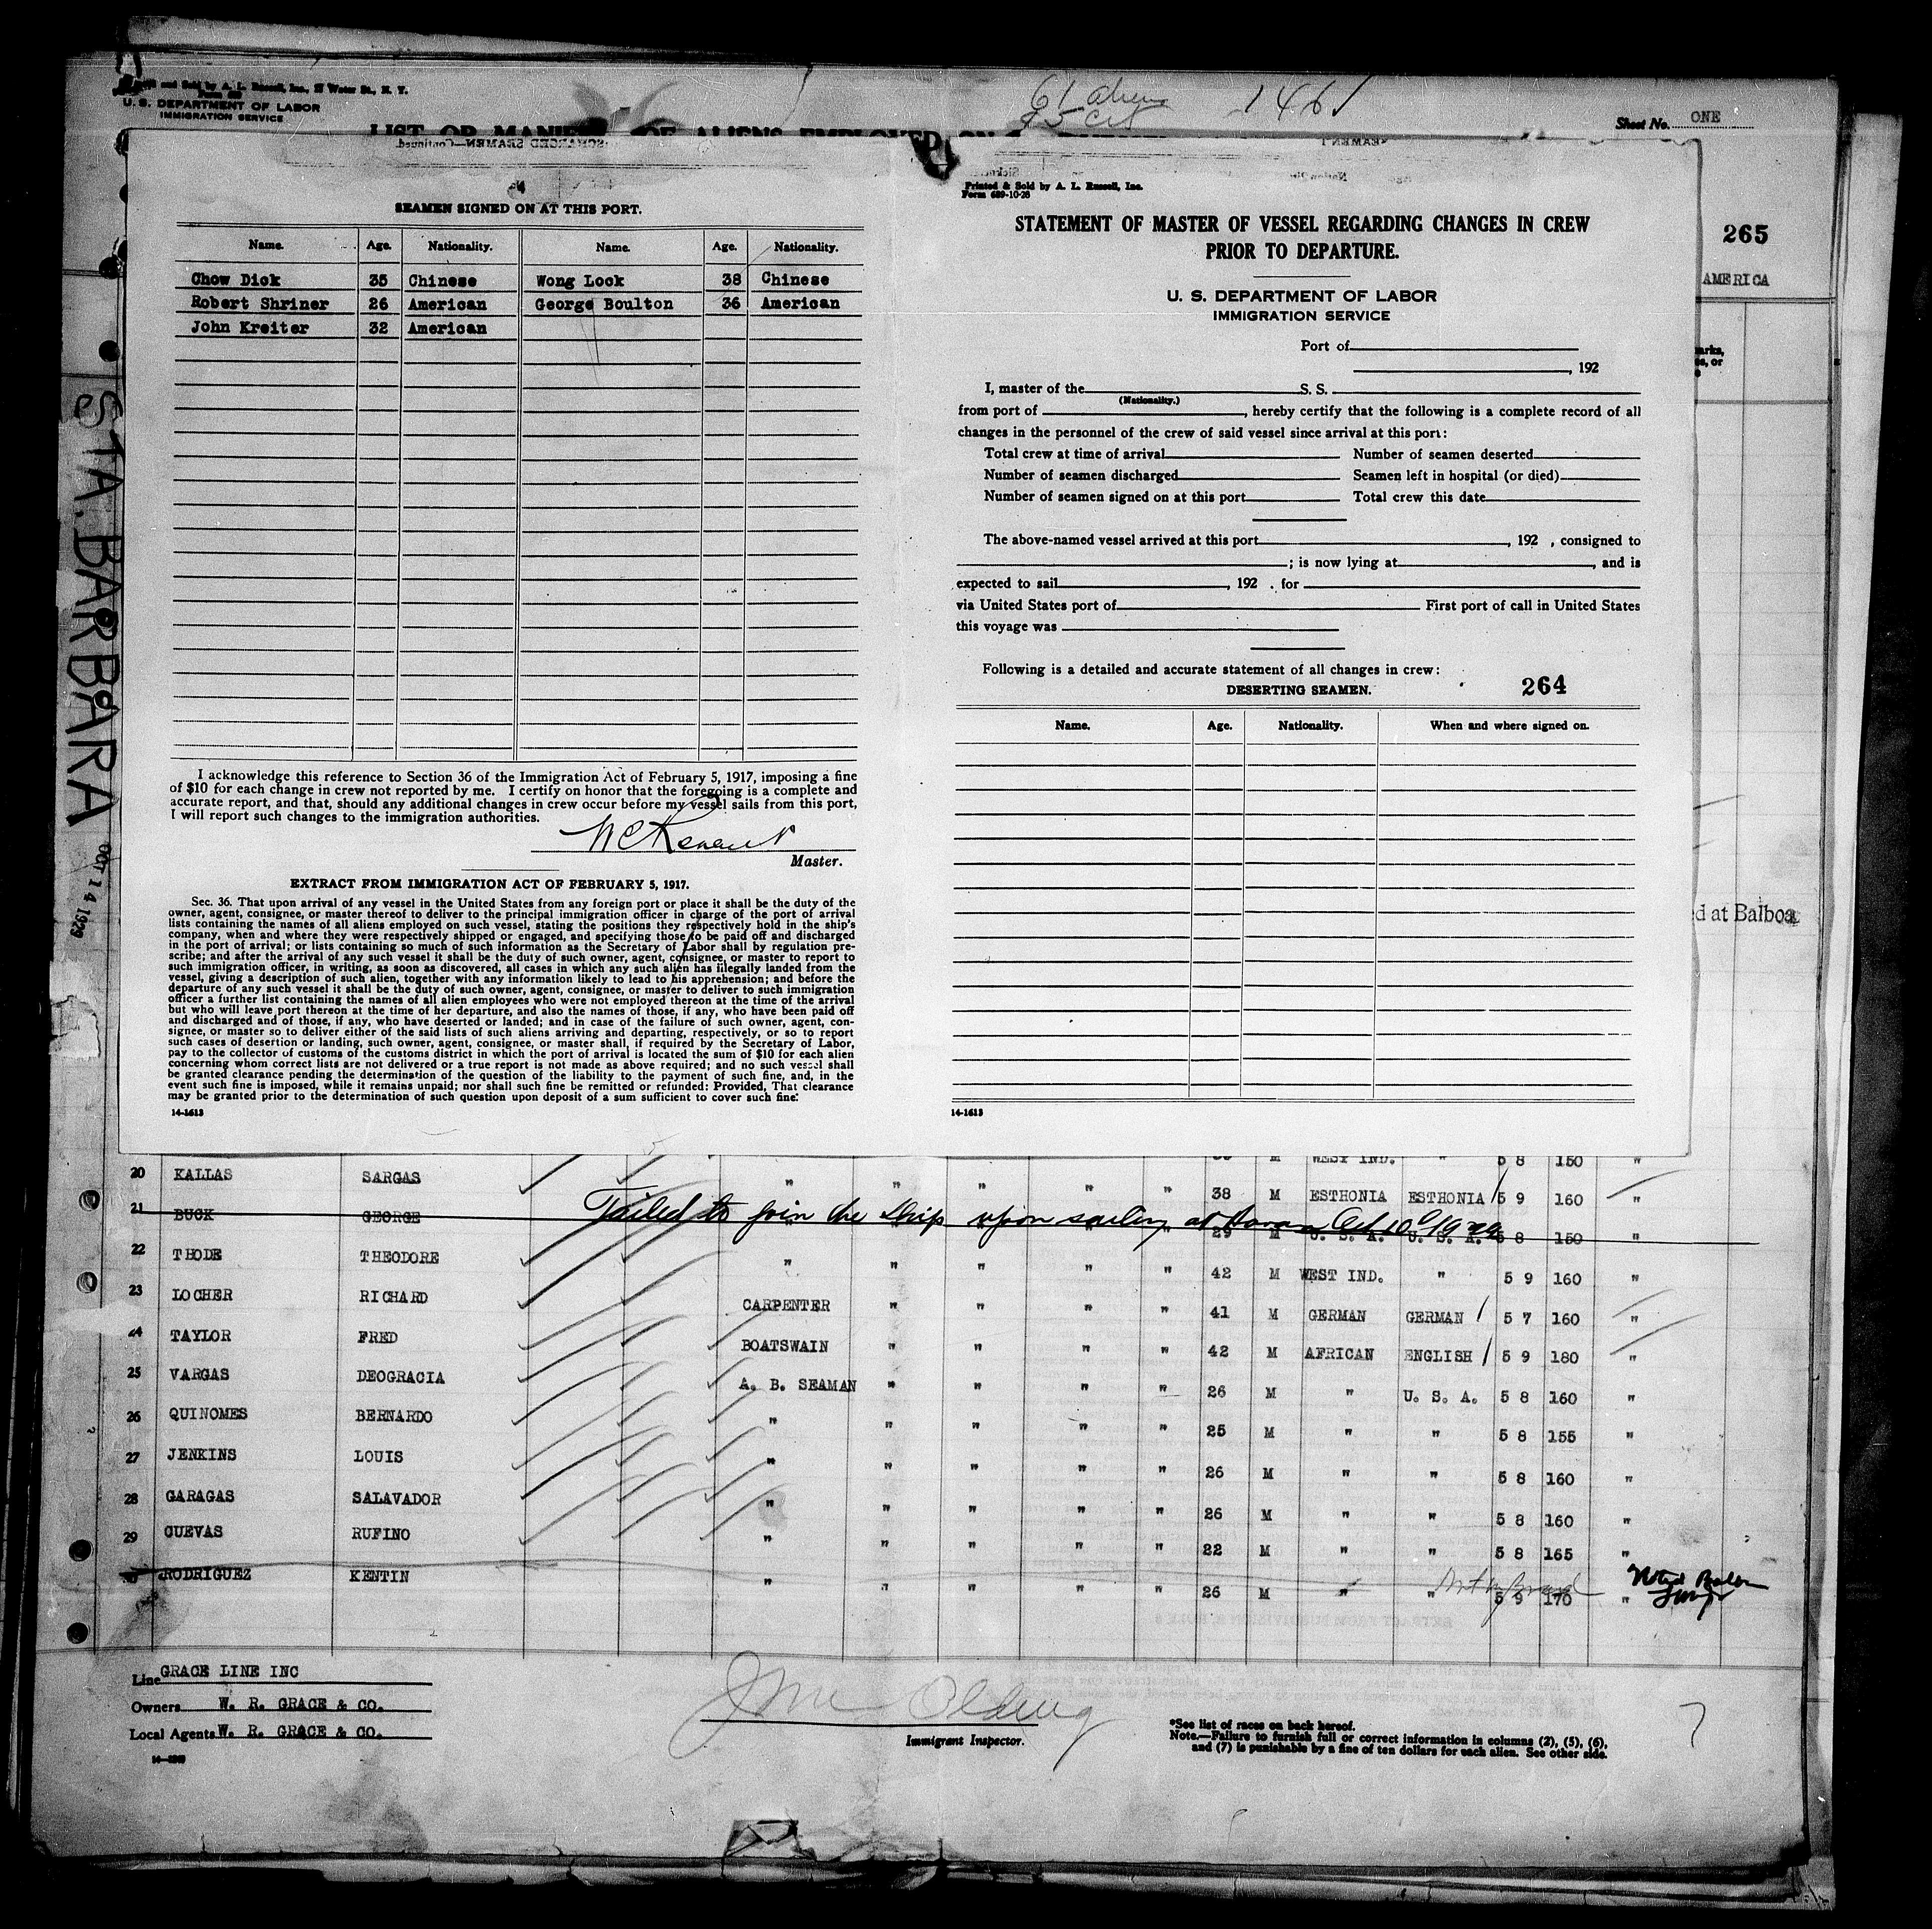 and Sold by A. L. Russell, Inc., 27 Water St., N. Y.
U. S. DEPARTMENT OF LABOR
IMMIGRATION SERVICE
61 aliens 1461
Sheet No. ONE
265
AMERICA
STA. BARBARA
OCT 14 1929
SEAMEN SIGNED ON AT THIS PORT.
Name. Age. Nationality. Name. Age. Nationality.
Chow Dick 35 Chinese Wong Lock 38 Chinese
Robert Shriner 26 American George Boulton 36 American
John Kreiter 32 American
I acknowledge this reference to Section 36 of the Immigration Act of February 5, 1917, imposing a fine
of $10 for each change in crew not reported by me. I certify on honor that the foregoing is a complete and
accurate report, and that, should any additional changes in crew occur before my vessel sails from this port,
I will report such changes to the immigration authorities.
Master.
EXTRACT FROM IMMIGRATION ACT OF FEBRUARY 5, 1917.
Sec. 36. That upon arrival of any vessel in the United States from any foreign port or place it shall be the duty of the
owner, agent, consignee, or master thereof to deliver to the principal immigration officer in charge of the port of arrival
lists containing the names of all aliens employed on such vessel, stating the positions they respectively hold in the ship's
company, when and where they were respectively shipped or engaged, and specifying those to be paid off and discharged
in the port of arrival; or lists containing so much of such information as the Secretary of Labor shall by regulation pre-
scribe; and after the arrival of any such vessel it shall be the duty of such owner, agent, consignee, or master to report to
such immigration officer, in writing, as soon as discovered, all cases in which any such alien has illegally landed from the
vessel, giving a description of such alien, together with any information likely to lead to his apprehension; and before the
departure of any such vessel it shall be the duty of such owner, agent, consignee, or master to deliver to such immigration
officer a further list containing the names of all alien employees who were not employed thereon at the time of the arrival
but who will leave port thereon at the time of her departure, and also the names of those, if any, who have been paid off
and discharged and of those, if any, who have deserted or landed; and in case of the failure of such owner, agent, con-
signee, or master so to deliver either of the said lists of such aliens arriving and departing, respectively, or so to report
such cases of desertion or landing, such owner, agent, consignee, or master shall, if required by the Secretary of Labor,
pay to the collector of customs of the customs district in which the port of arrival is located the sum of $10 for each alien
concerning whom correct lists are not delivered or a true report is not made as above required; and no such vessel shall
be granted clearance pending the determination of the question of the liability to the payment of such fine, and, in the
event such fine is imposed, while it remains unpaid; nor shall such fine be remitted or refunded: Provided, That clearance
may be granted prior to the determination of such question upon deposit of a sum sufficient to cover such fine.
14-1613
Printed & Sold by A. L. Russell, Inc.
Form 689-10-26
STATEMENT OF MASTER OF VESSEL REGARDING CHANGES IN CREW
PRIOR TO DEPARTURE.
U. S. DEPARTMENT OF LABOR
IMMIGRATION SERVICE
Port of
, 192
I, master of the S. S.
(Nationality.)
from port of , hereby certify that the following is a complete record of all
changes in the personnel of the crew of said vessel since arrival at this port:
Total crew at time of arrival Number of seamen deserted
Number of seamen discharged Seamen left in hospital (or died)
Number of seamen signed on at this port Total crew this date
The above-named vessel arrived at this port , 192 , consigned to
; is now lying at , and is
expected to sail , 192 . for
via United States port of First port of call in United States
this voyage was
Following is a detailed and accurate statement of all changes in crew:
DESERTING SEAMEN.
264
Name. Age. Nationality. When and where signed on.
14-1613
d at Balboa
WEST IND. " 5 8 150 "
20 KALLAS SARGAS " " " " " 38 M ESTHONIA ESTHONIA 5 9 160 "
Failed to join the ship upon sailing at Havana Oct 10th 1929
21 BUCK GEORGE 29 M U. S. A. U. S. A. 5 8 150 "
22 THODE THEODORE " " " " " 42 M WEST IND. " 5 9 160 "
23 LOCHER RICHARD CARPENTER " " " " 41 M GERMAN GERMAN 5 7 160 "
24 TAYLOR FRED BOATSWAIN " " " " 42 M AFRICAN ENGLISH 5 9 180 "
25 VARGAS DEOGRACIA A. B. SEAMAN " " " " 26 M " U. S. A. 5 8 160 "
26 QUINOMES BERNARDO " " " " " 25 M " " 5 8 155 "
27 JENKINS LOUIS " " " " " 26 M " " 5 8 160 "
28 GARAGAS SALAVADOR " " " " " 26 M " " 5 8 160 "
29 CUEVAS RUFINO " " " " " 22 M " " 5 8 165 "
30 RODRIGUEZ KENTIN " " " " " 26 M " " 5 9 170 "
Line GRACE LINE INC
Owners W. R. GRACE & CO.
Local Agents W. R. GRACE & CO.
Immigrant Inspector.
*See list of races on back hereof.
Note.—Failure to furnish full or correct information in columns (2), (5), (6),
and (7) is punishable by a fine of ten dollars for each alien. See other side.